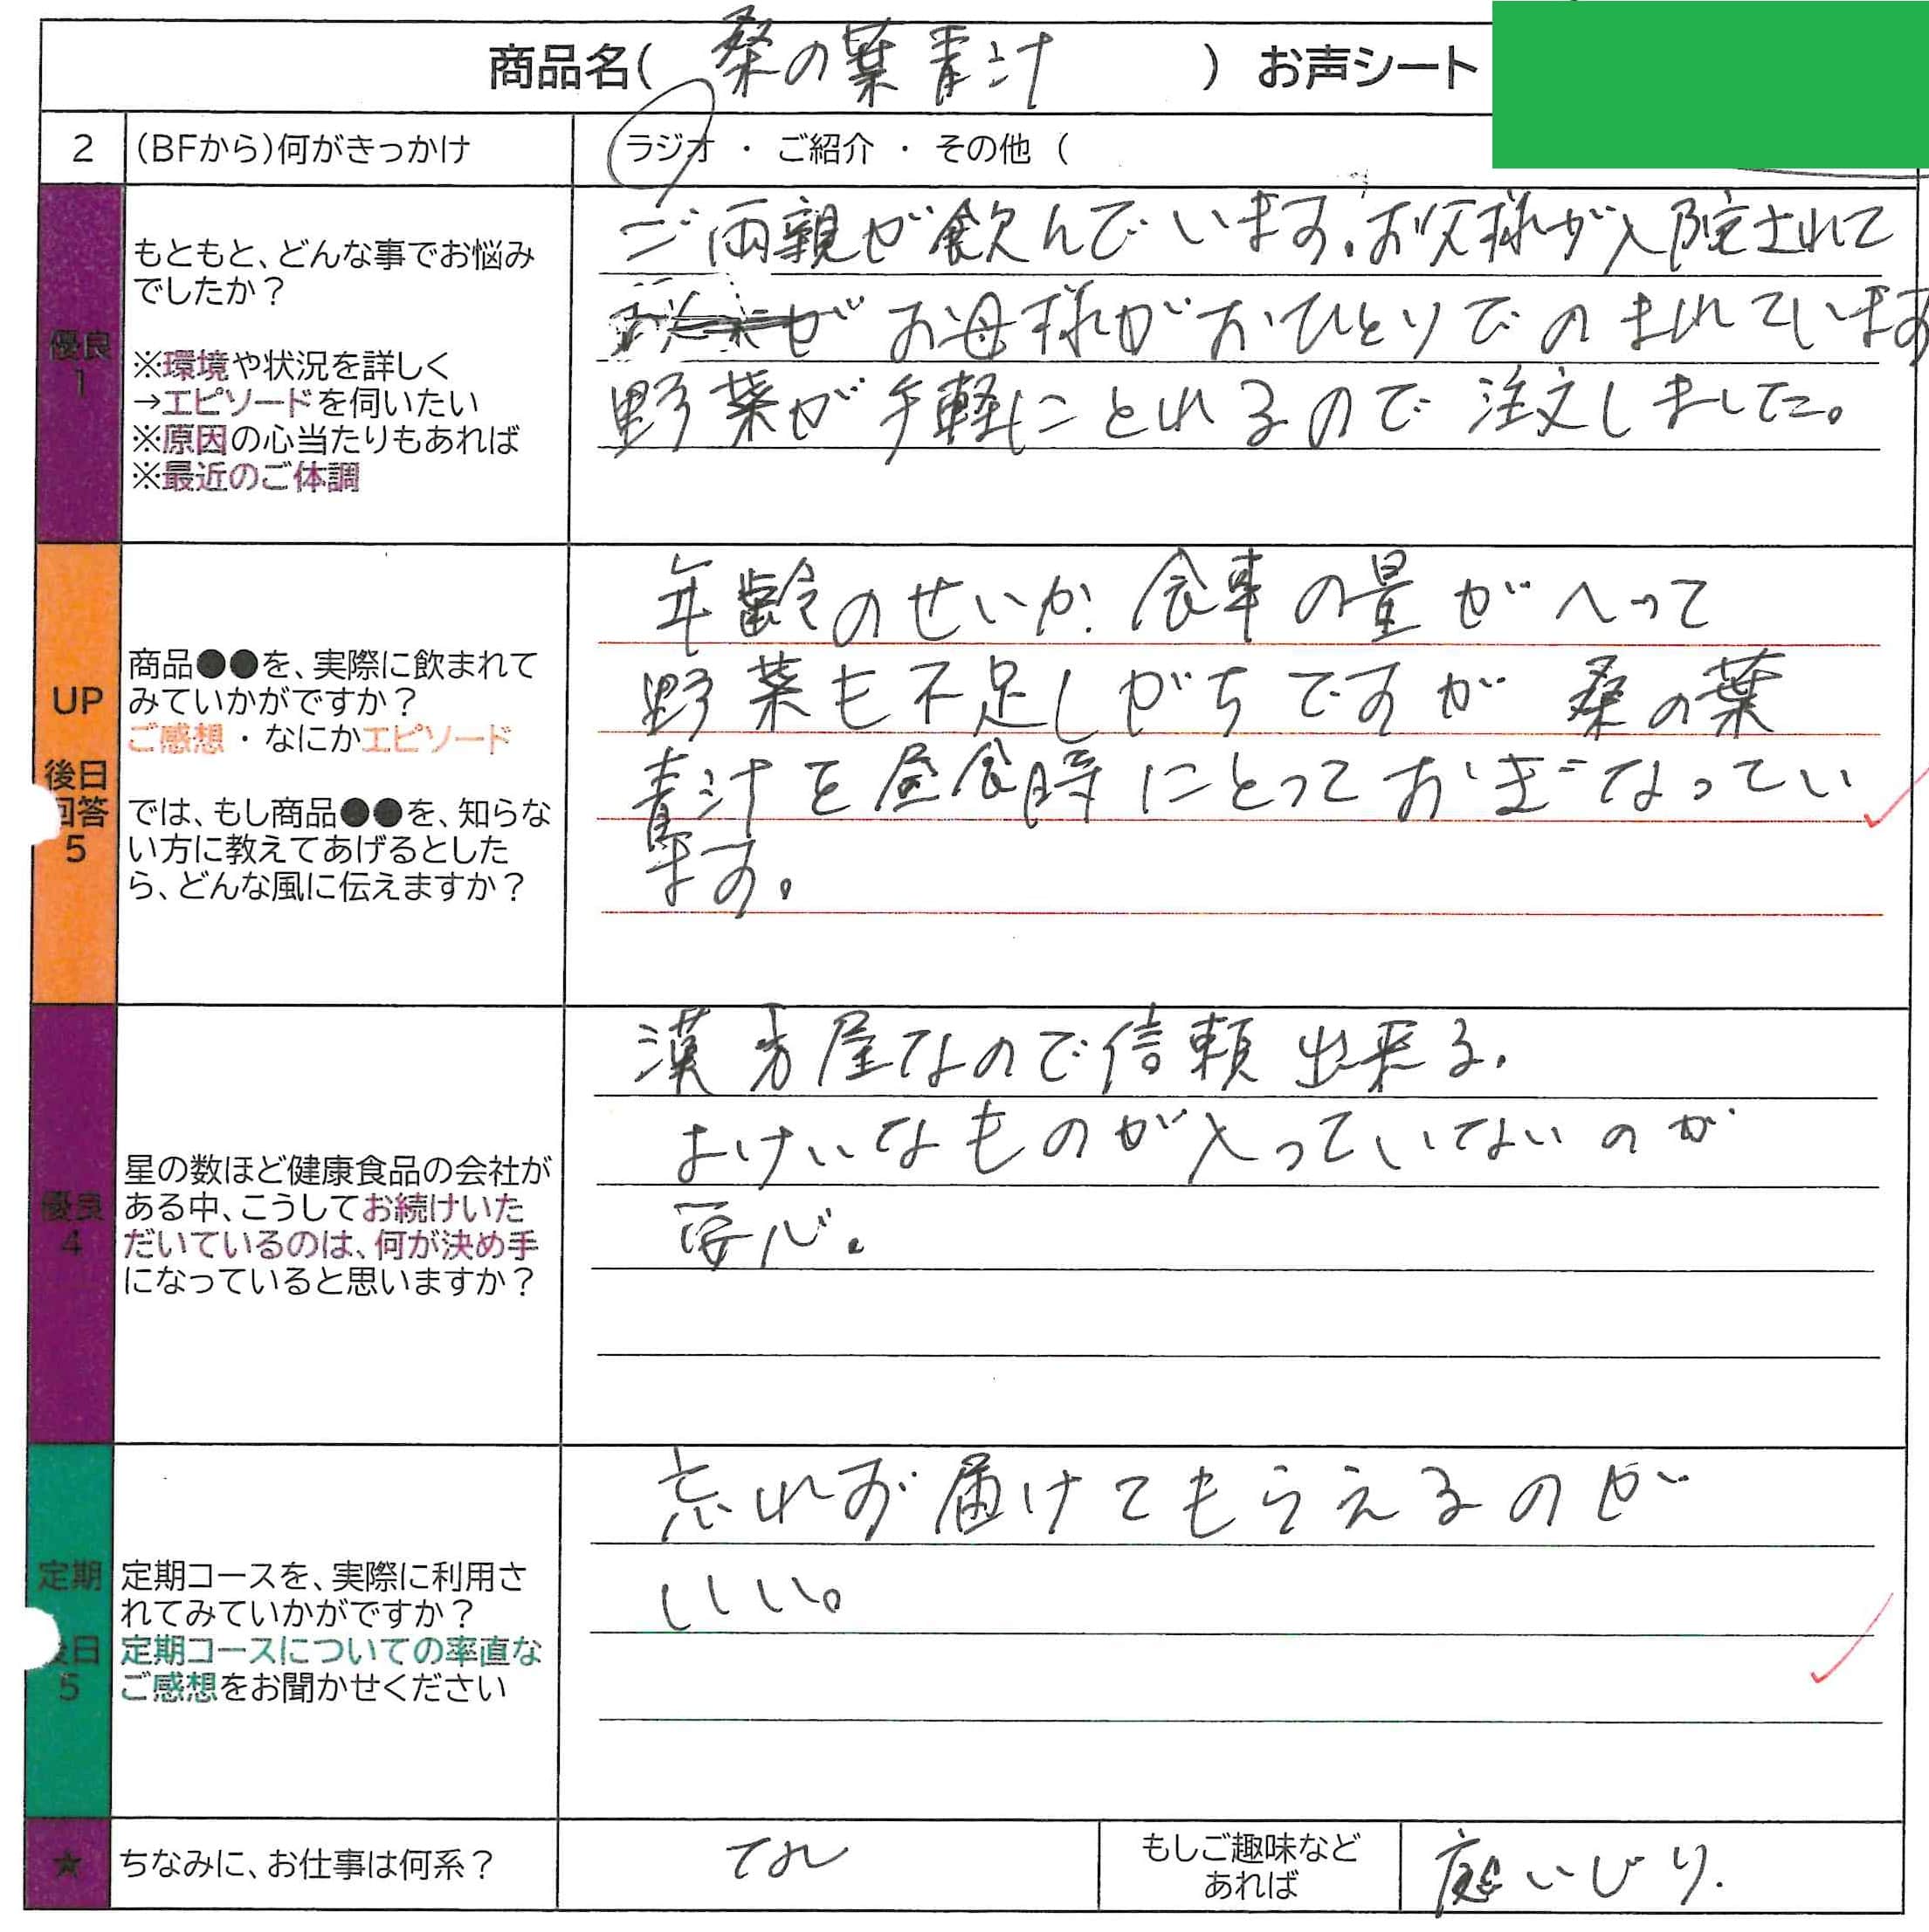 商品名( 桑の葉青汁 ) お声シート
2 (BFから)何がきっかけ ラジオ ・ ご紹介 ・ その他 (
優良
1
もともと、どんな事でお悩み
でしたか？
※環境や状況を詳しく
→エピソードを伺いたい
※原因の心当たりもあれば
※最近のご体調
ご両親が飲んでいます。お父様が入院されて
が お母様がおひとりでのまれています
野菜が手軽にとれるので注文しました。
UP
後日
回答
5
商品●●を、実際に飲まれて
みていかがですか？
ご感想・なにかエピソード
では、もし商品●●を、知らな
い方に教えてあげるとした
ら、どんな風に伝えますか？
年齢のせいか、食事の量がへって
野菜も不足しがちですが 桑の葉
青汁を昼食時にとっておぎなってい
ます。
優良
4
星の数ほど健康食品の会社が
ある中、こうしてお続けいた
だいているのは、何が決め手
になっていると思いますか？
漢方屋なので信頼出来る。
よけいなものが入っていないのが
安心。
定期
後日
5
定期コースを、実際に利用さ
れてみていかがですか？
定期コースについての率直な
ご感想をお聞かせください
忘れず届けてもらえるのが
いい。
★ ちなみに、お仕事は何系？ もしご趣味など
あれば
庭いじり.